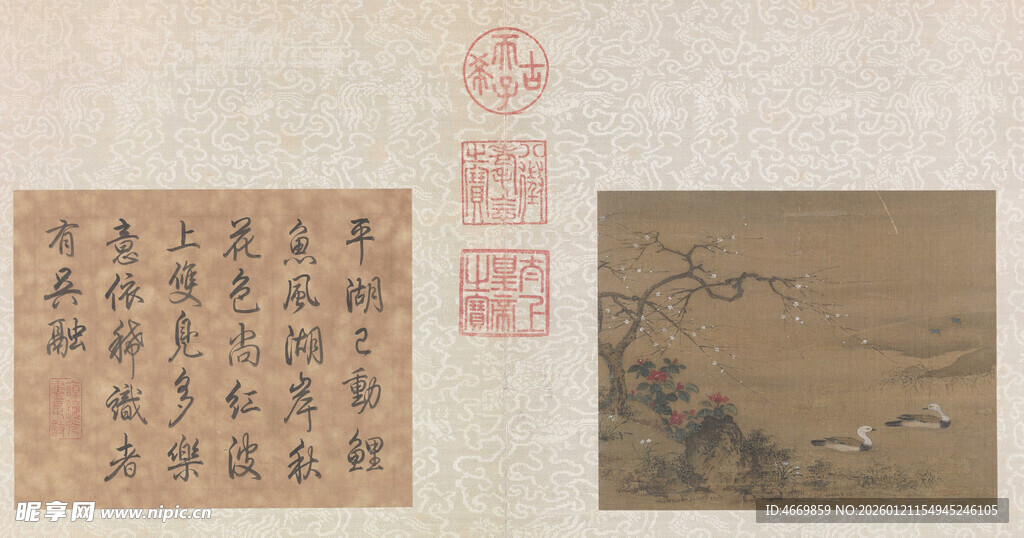 古希天子
八徵耄念之寶
太上皇帝之寶
平湖已動鯉
魚風湖岸秋
花色尚紅波
上雙鳧多樂
意依稀識者
有吳融
昵享网 www.nipic.cn
ID:4669859 NO:20260121154945246105